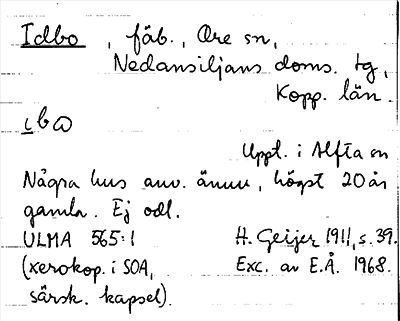 Idbo, fäb., Ore sn,
Nedansiljans doms. tg,
Kopp. län.
ɩbɷ
Uppt. i Alfta sn
Några hus anv. ännu, högst 20 år
gamla. Ej odl.
ULMA 565:1 H. Geijer 1911, s. 39.
(xerokop. i SOA, Exc. av E.Å. 1968.
särsk. kapsel).